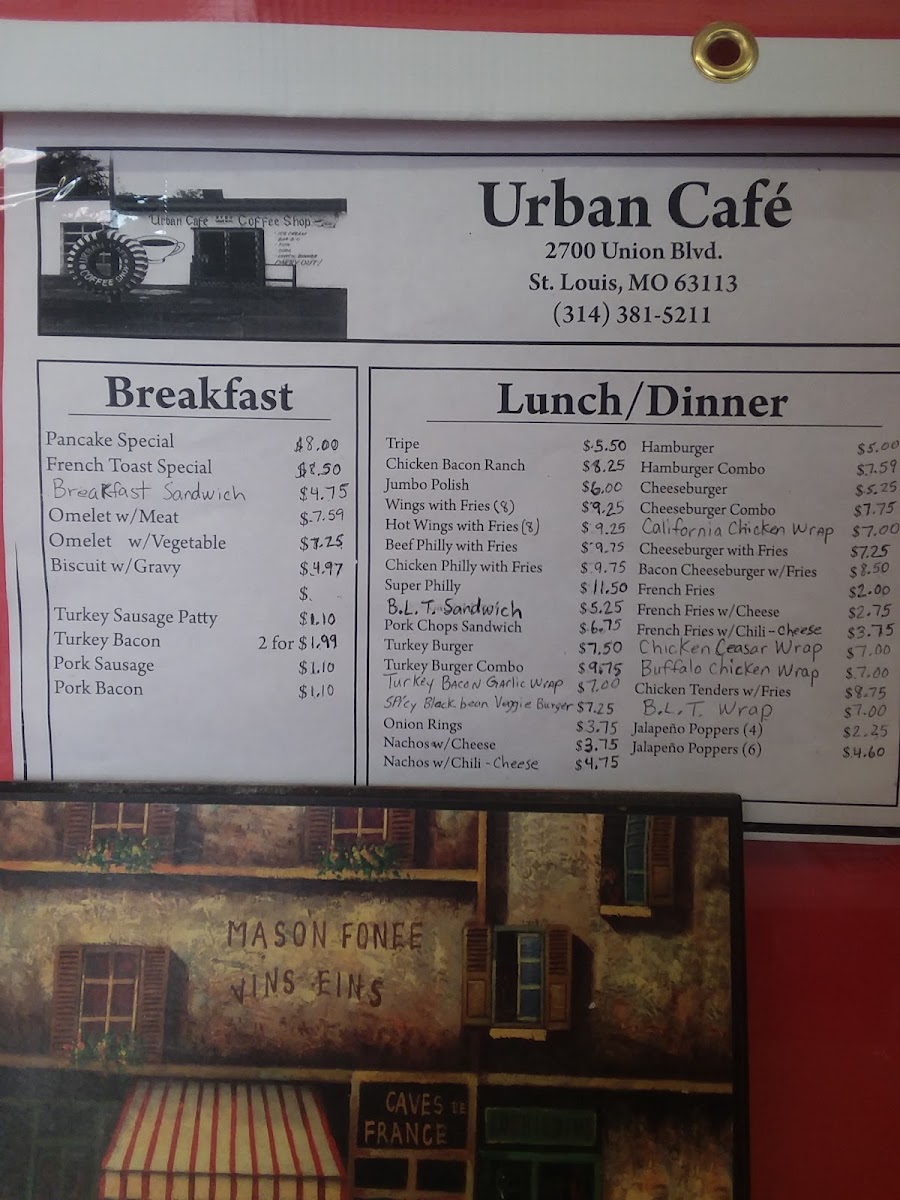 Urban Cafe Coffee Shop
COFFEE SHOP
Urban Café
2700 Union Blvd.
St. Louis, MO 63113
(314) 381-5211
Breakfast
Pancake Special $8.00
French Toast Special $8.50
Breakfast Sandwich $4.75
Omelet w/Meat $7.59
Omelet w/Vegetable $7.25
Biscuit w/Gravy $4.97
$
Turkey Sausage Patty $1.10
Turkey Bacon 2 for $1.99
Pork Sausage $1.10
Pork Bacon $1.10
Lunch/Dinner
Tripe $5.50
Chicken Bacon Ranch $8.25
Jumbo Polish $6.00
Wings with Fries (8) $9.25
Hot Wings with Fries (8) $9.25
Beef Philly with Fries $9.75
Chicken Philly with Fries $9.75
Super Philly $11.50
B.L.T. Sandwich $5.25
Pork Chops Sandwich $6.75
Turkey Burger $7.50
Turkey Burger Combo $9.75
Turkey Bacon Garlic Wrap $7.00
Spicy Black bean Veggie Burger $7.25
Onion Rings $3.75
Nachos w/Cheese $3.75
Nachos w/Chili - Cheese $4.75
Hamburger $5.00
Hamburger Combo $7.59
Cheeseburger $5.25
Cheeseburger Combo $7.75
California Chicken Wrap $7.00
Cheeseburger with Fries $7.25
Bacon Cheeseburger w/Fries $8.50
French Fries $2.00
French Fries w/Cheese $2.75
French Fries w/Chili - Cheese $3.75
Chicken Ceasar Wrap $7.00
Buffalo Chicken Wrap $7.00
Chicken Tenders w/Fries $8.75
B.L.T. Wrap $7.00
Jalapeño Poppers (4) $2.25
Jalapeño Poppers (6) $4.60
MASON FONEE
VINS EINS
CAVES DE
FRANCE